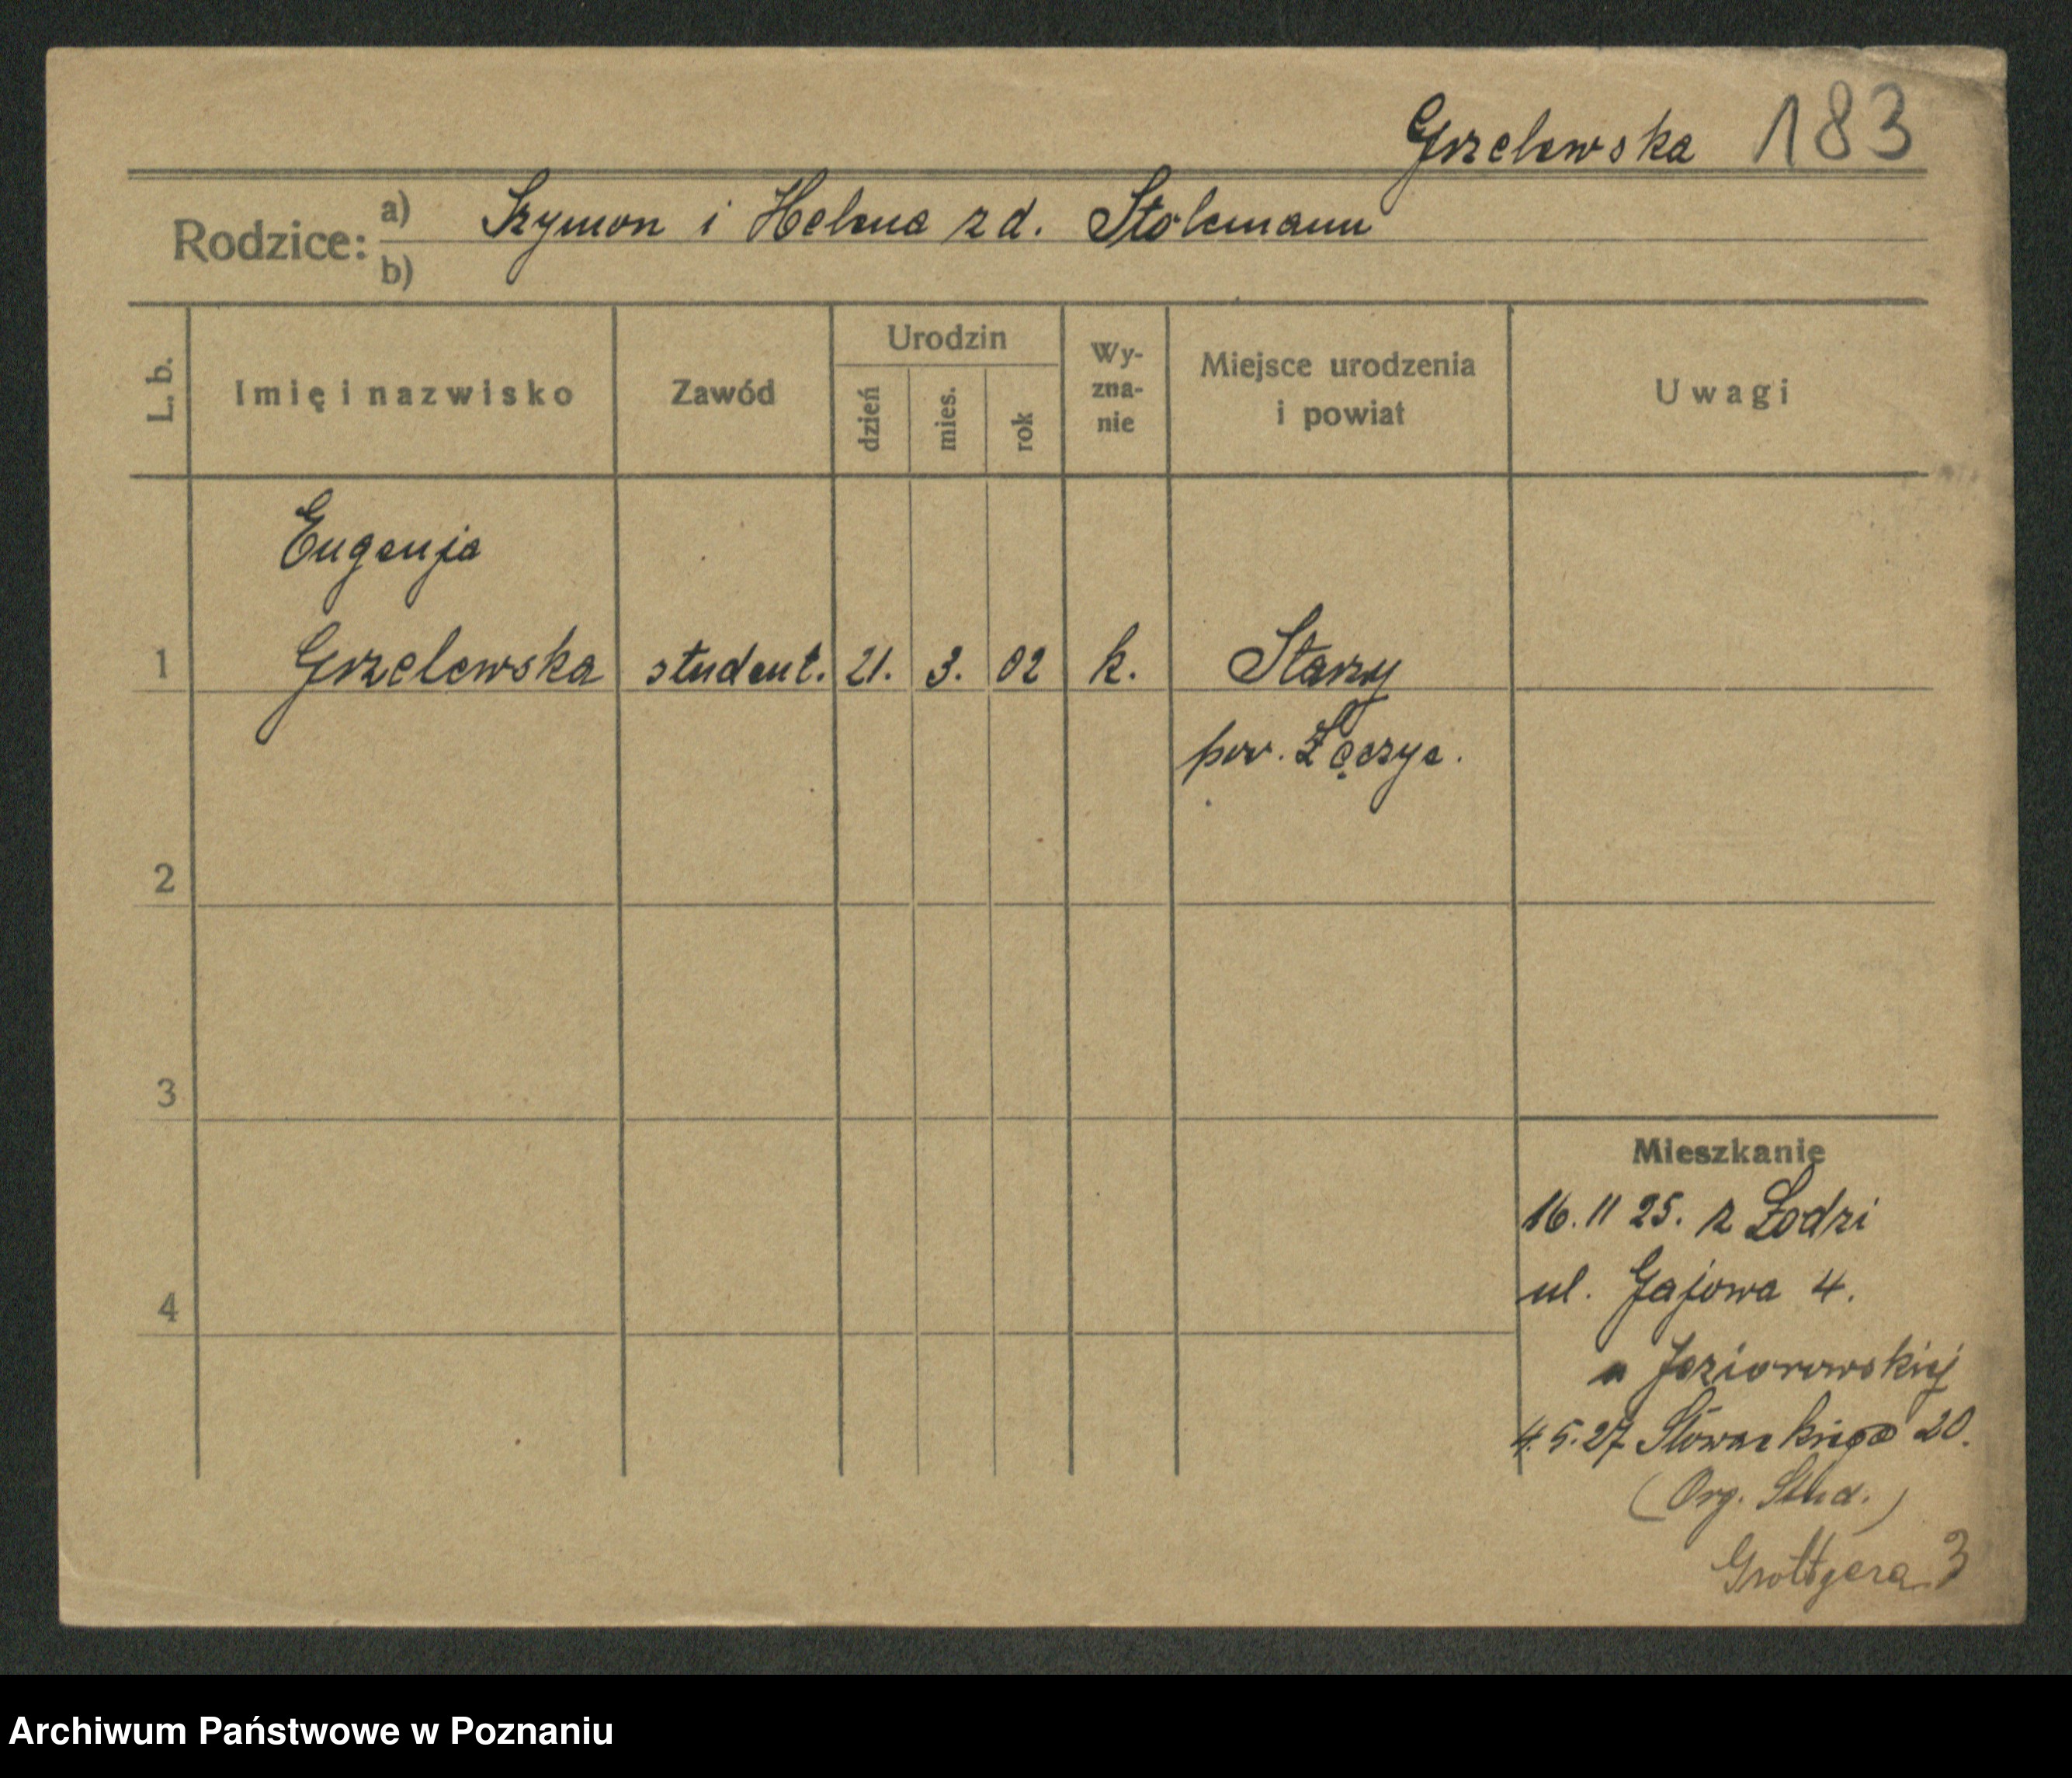 Grzelewska 183
Rodzice: a) Szymon i Helena z d. Stolemann
b)
L. b. Imię i nazwisko Zawód Urodzin dzień mies. rok Wy-zna-nie Miejsce urodzenia i powiat Uwagi
Eugenja
1 Grzelewska student. 21. 3. 02 k. Stary
pow. Łęczyc.
2
3
Mieszkanie
16. 11 25. z Łodzi
4 ul. Gajowa 4.
u Jeziorowskiej
4. 5. 27 Słowackiego 20.
(Org. Stud.)
Grottgera 3
Archiwum Państwowe w Poznaniu